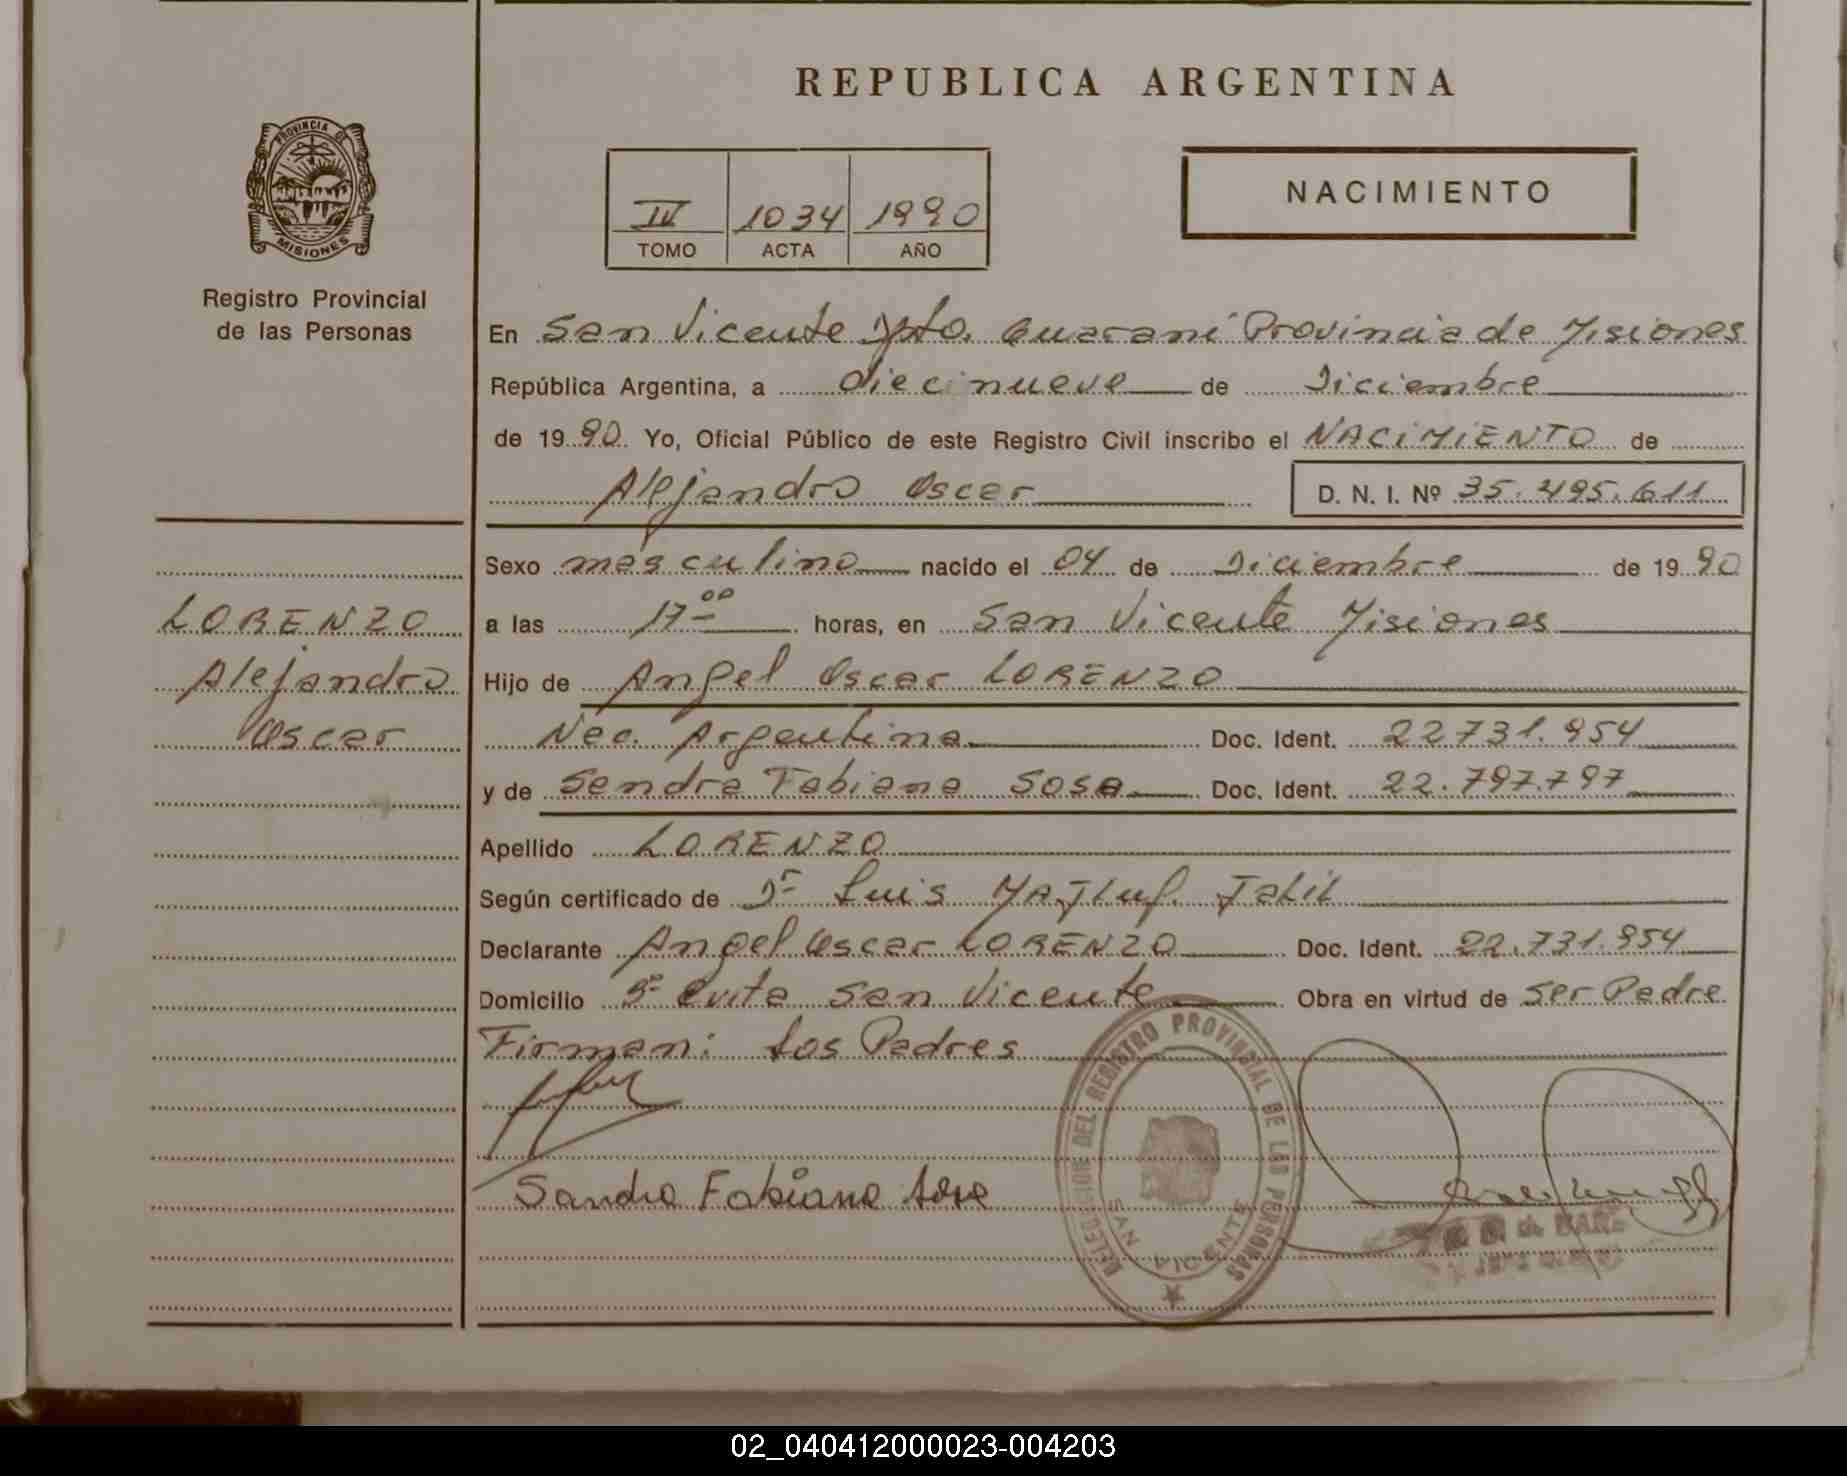 REPUBLICA ARGENTINA
PROVINCIA DE
MISIONES
Registro Provincial
de las Personas
IV 1034 1990
TOMO ACTA AÑO
NACIMIENTO
En San Vicente Dpto. Guaraní Provincia de Misiones
República Argentina, a diecinueve de Diciembre
de 1990 Yo, Oficial Público de este Registro Civil inscribo el NACIMIENTO de
Alejandro Oscar D. N. I. Nº 35.495.611
Sexo masculino nacido el 04 de Diciembre de 1990
a las 17 00 horas, en San Vicente Misiones
Hijo de Angel Oscar LORENZO
Nac. Argentina Doc. Ident. 22731.954
y de Sandra Fabiana Sosa Doc. Ident. 22.797.797
Apellido LORENZO
Según certificado de Dr Luis
Declarante Angel Oscar LORENZO Doc. Ident. 22.731.954
Domicilio Bº Evita San Vicente Obra en virtud de Ser Padre
Firman: Los Padres
Sandra Fabiana Sosa
LORENZO
Alejandro
Oscar
DELEGACION DEL REGISTRO PROVINCIAL DE LAS PERSONAS
SAN VICENTE
02_040412000023-004203